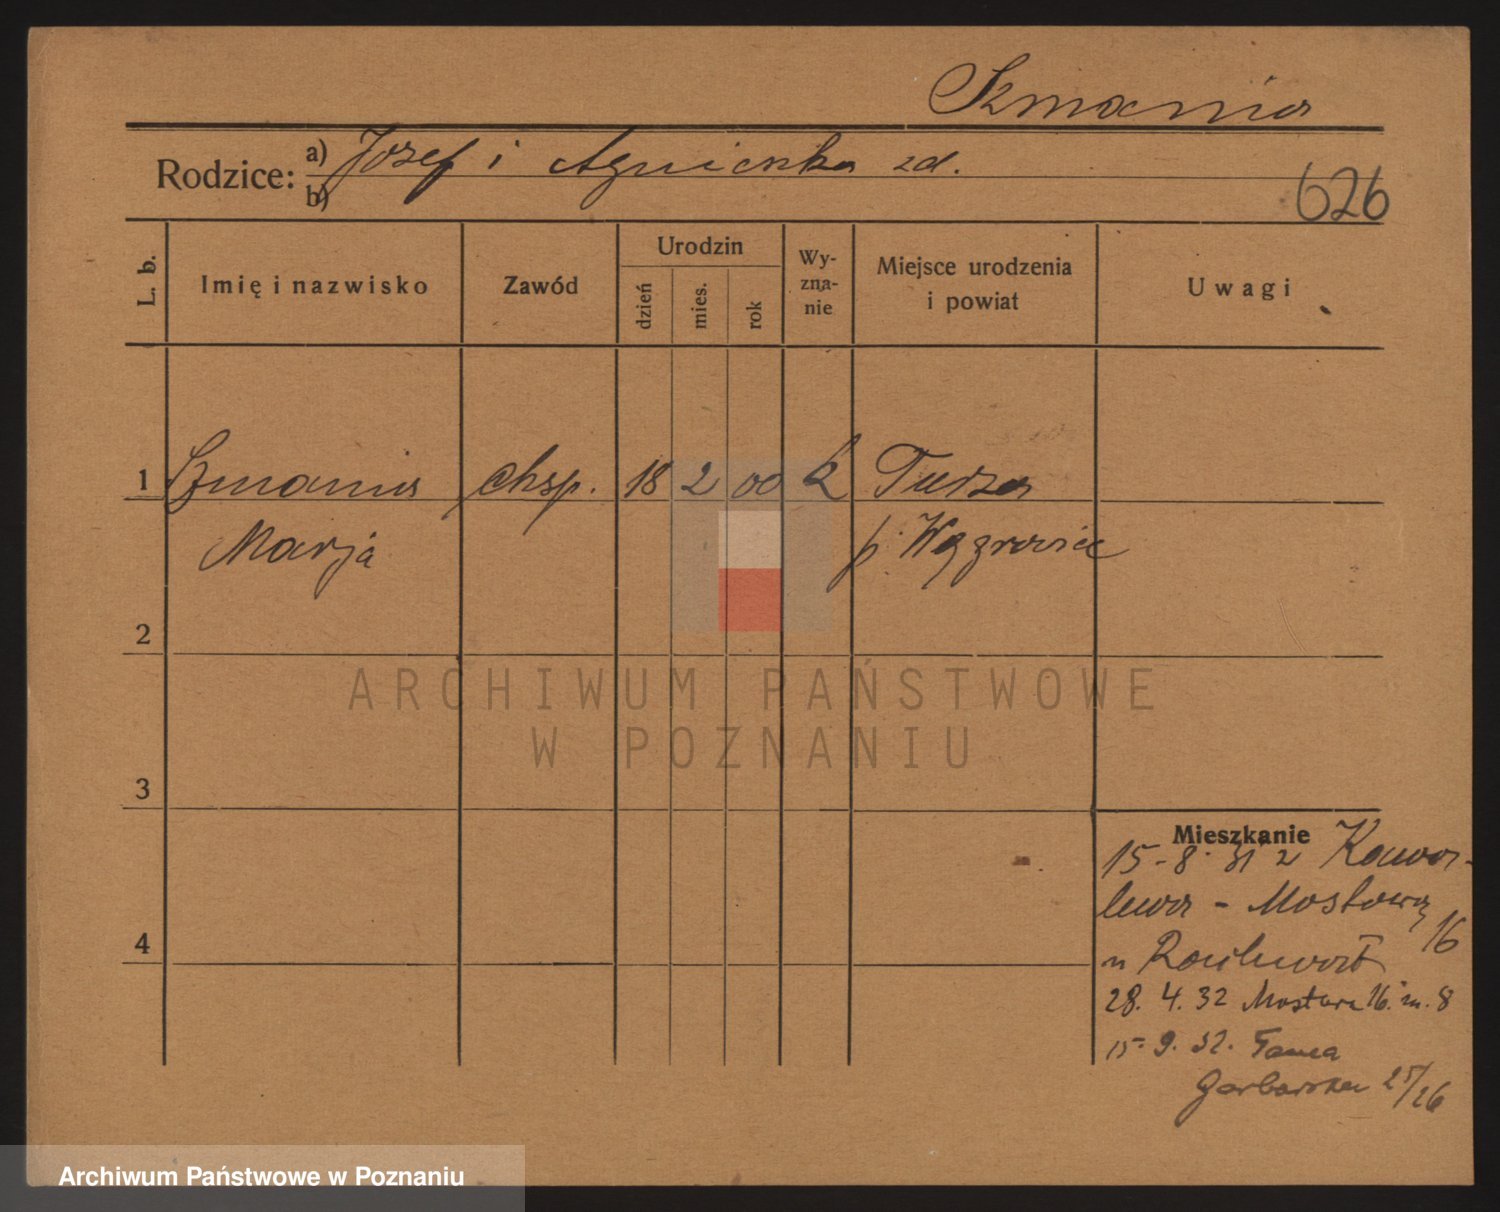 Szmania
Rodzice: a) Józef i Agnieszka zd.
b)
626
L. b.
Imię i nazwisko
Zawód
Urodzin
dzień
mies.
rok
Wy-
zna-
nie
Miejsce urodzenia
i powiat
Uwagi
1 Szmania chsp. 18 2 00 k Turza
Marja p. Wągrowiec
2
3
4
Mieszkanie
15-8-31 z
- Mostowa
16
28. 4. 32 Mostowa 16. m. 8
15. 9. 32.
Garbarska 25/26
ARCHIWUM PAŃSTWOWE
W POZNANIU
Archiwum Państwowe w Poznaniu